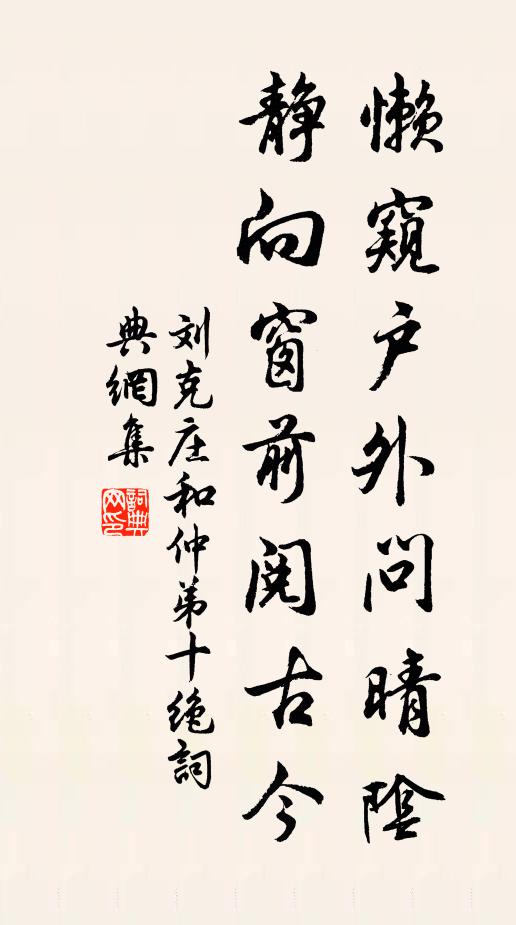 懒窥户外问晴陰
静向窗前阅古今
刘克庄和仲弟十绝詞
典網集
詞典网印